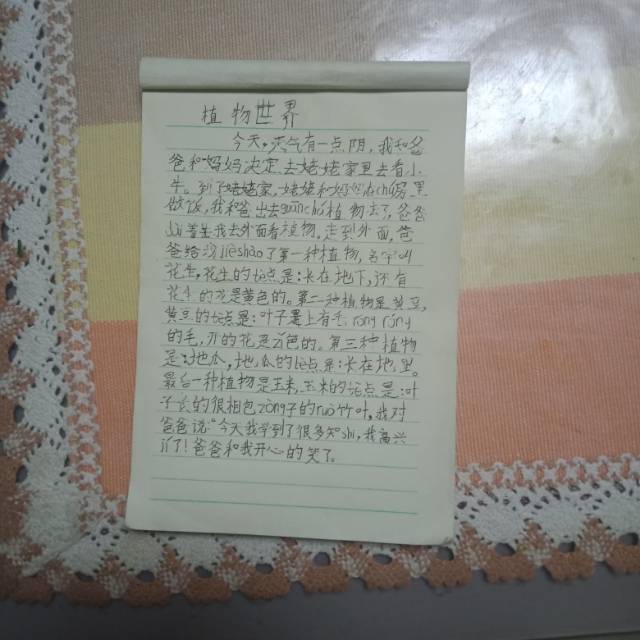 植物世界
今天,天气有一点阴,我和爸
爸和妈妈决定去姥姥家里去看小
牛。到了姥姥家,姥姥和妈妈在chú房里
做饭,我和爸出去guānchá植物去了,爸爸
dài着我去外面看植物,走到外面,爸
爸给没jièshào了第一种植物,名字叫
花生,花生的特点是:长在地下,还有
花生的花是黄色的。第二种植物是黄豆,
黄豆的特点是:叶子是上有毛 róng róng
的毛,开的花是 色的。第三种植物
是:地瓜,地瓜的特点是:长在地里。
最后一种植物是玉米,玉米的特点是:叶
子长的很相包zòng子的ruò竹叶。我对
爸爸说:“今天我学到了很多知shi,我高兴
了!爸爸和我开心的笑了。